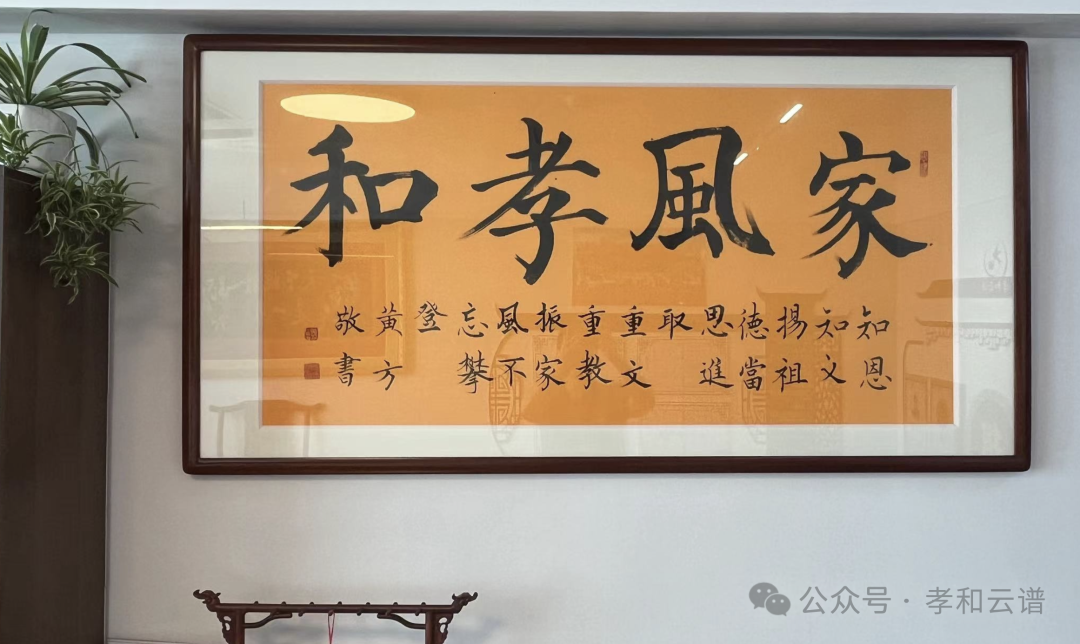 家風孝和
知恩
知义
揚祖
德當
思進
取
重文
重教
振家
風不
忘攀
登
黄方
敬書
公众号 · 孝和云谱